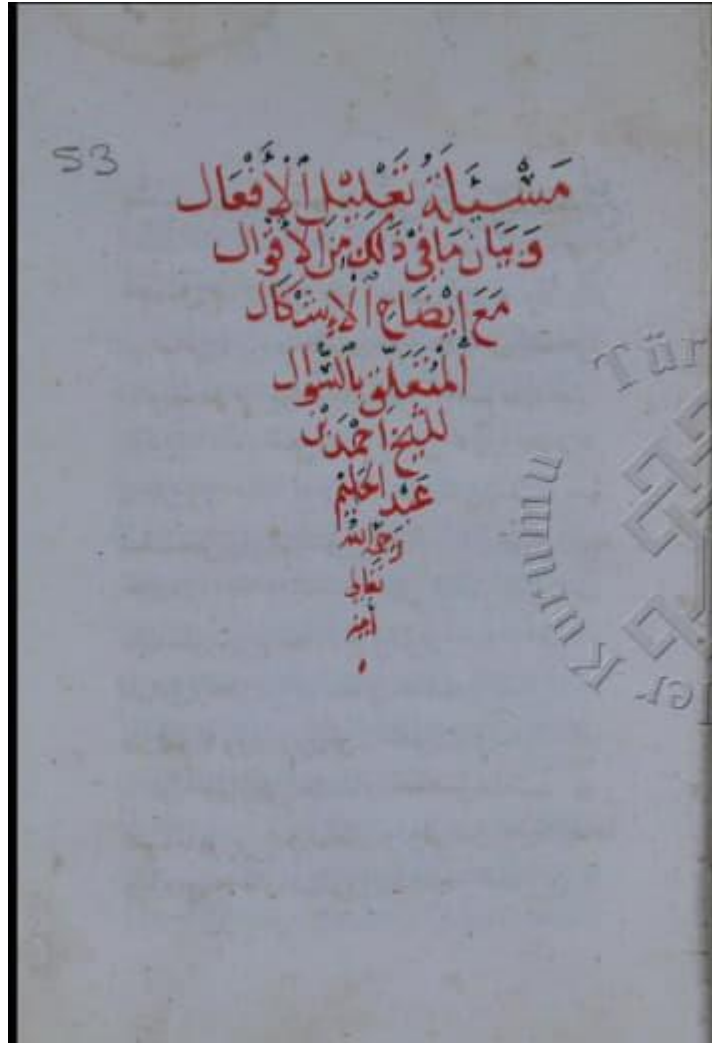 53
مَسْئَلَةُ تَعْلِيْلِ ٱلْأَفْعَالِ
وَبَيَان مَا فِيْ ذَلِكَ مِنَ الْأَقْوَالِ
مَعَ إِيْضَاحِ ٱلْإِشْكَالِ
ٱلْمُتَعَلِّقِ بِالسُّوَالِ
للشيخ أحْمَد بْن
عَبْد الحَلِيْم
رحمه الله
تعالى
Tür
er Kurumu